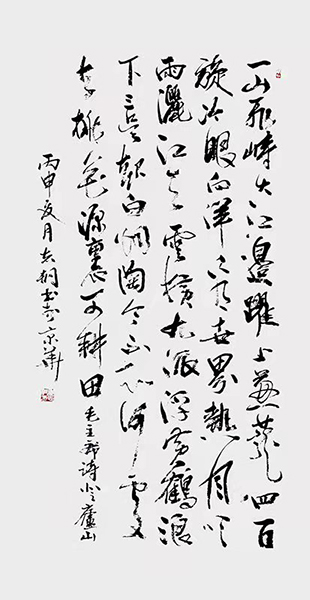 一山飛峙大江邊躍上葱蘢四百
旋冷眼向洋看世界熱風吹
雨灑江天雲橫九派浮黃鶴浪
下三吳起白烟陶令不知何處
去桃花源裏可耕田毛主席詩登廬山
丙申夏月書於京華